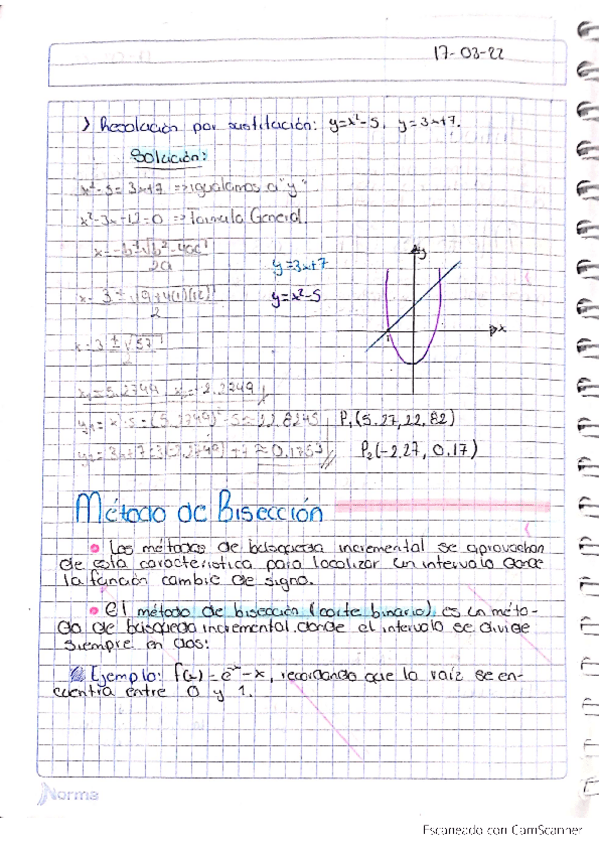 17-03-22
> Resolución por sustitución: y=x²-5, y=3x+7.
Solución:
x²-5=3x+7 => igualamos a "y"
x²-3x-12=0 => Formula General.
x=-b±√b²-4ac
2a
y=3x+7
y
x=3±√9+4(1)(12)
2
y=x²-5
x
x=3±√57
2
x₁=5.2749, x₂=-2.2749
y₁=x²-5=(5.2749)²-5=22.8245 P₁(5.27,22.82)
y₂=3x+7=3(-2.2749)+7≈0.1753 P₂(-2.27, 0.17)
Método de Bisección
• Los métodos de búsqueda incremental se aprovechan
de esta característica para localizar un intervalo donde
la función cambie de signo.
• El método de bisección (corte binario) es un méto-
do de búsqueda incremental donde el intervalo se divide
siempre en dos:
Ejemplo: f(x)=e⁻ˣ-x, recordando que la raíz se en-
cuentra entre 0 y 1.
Norma
Escaneado con CamScanner